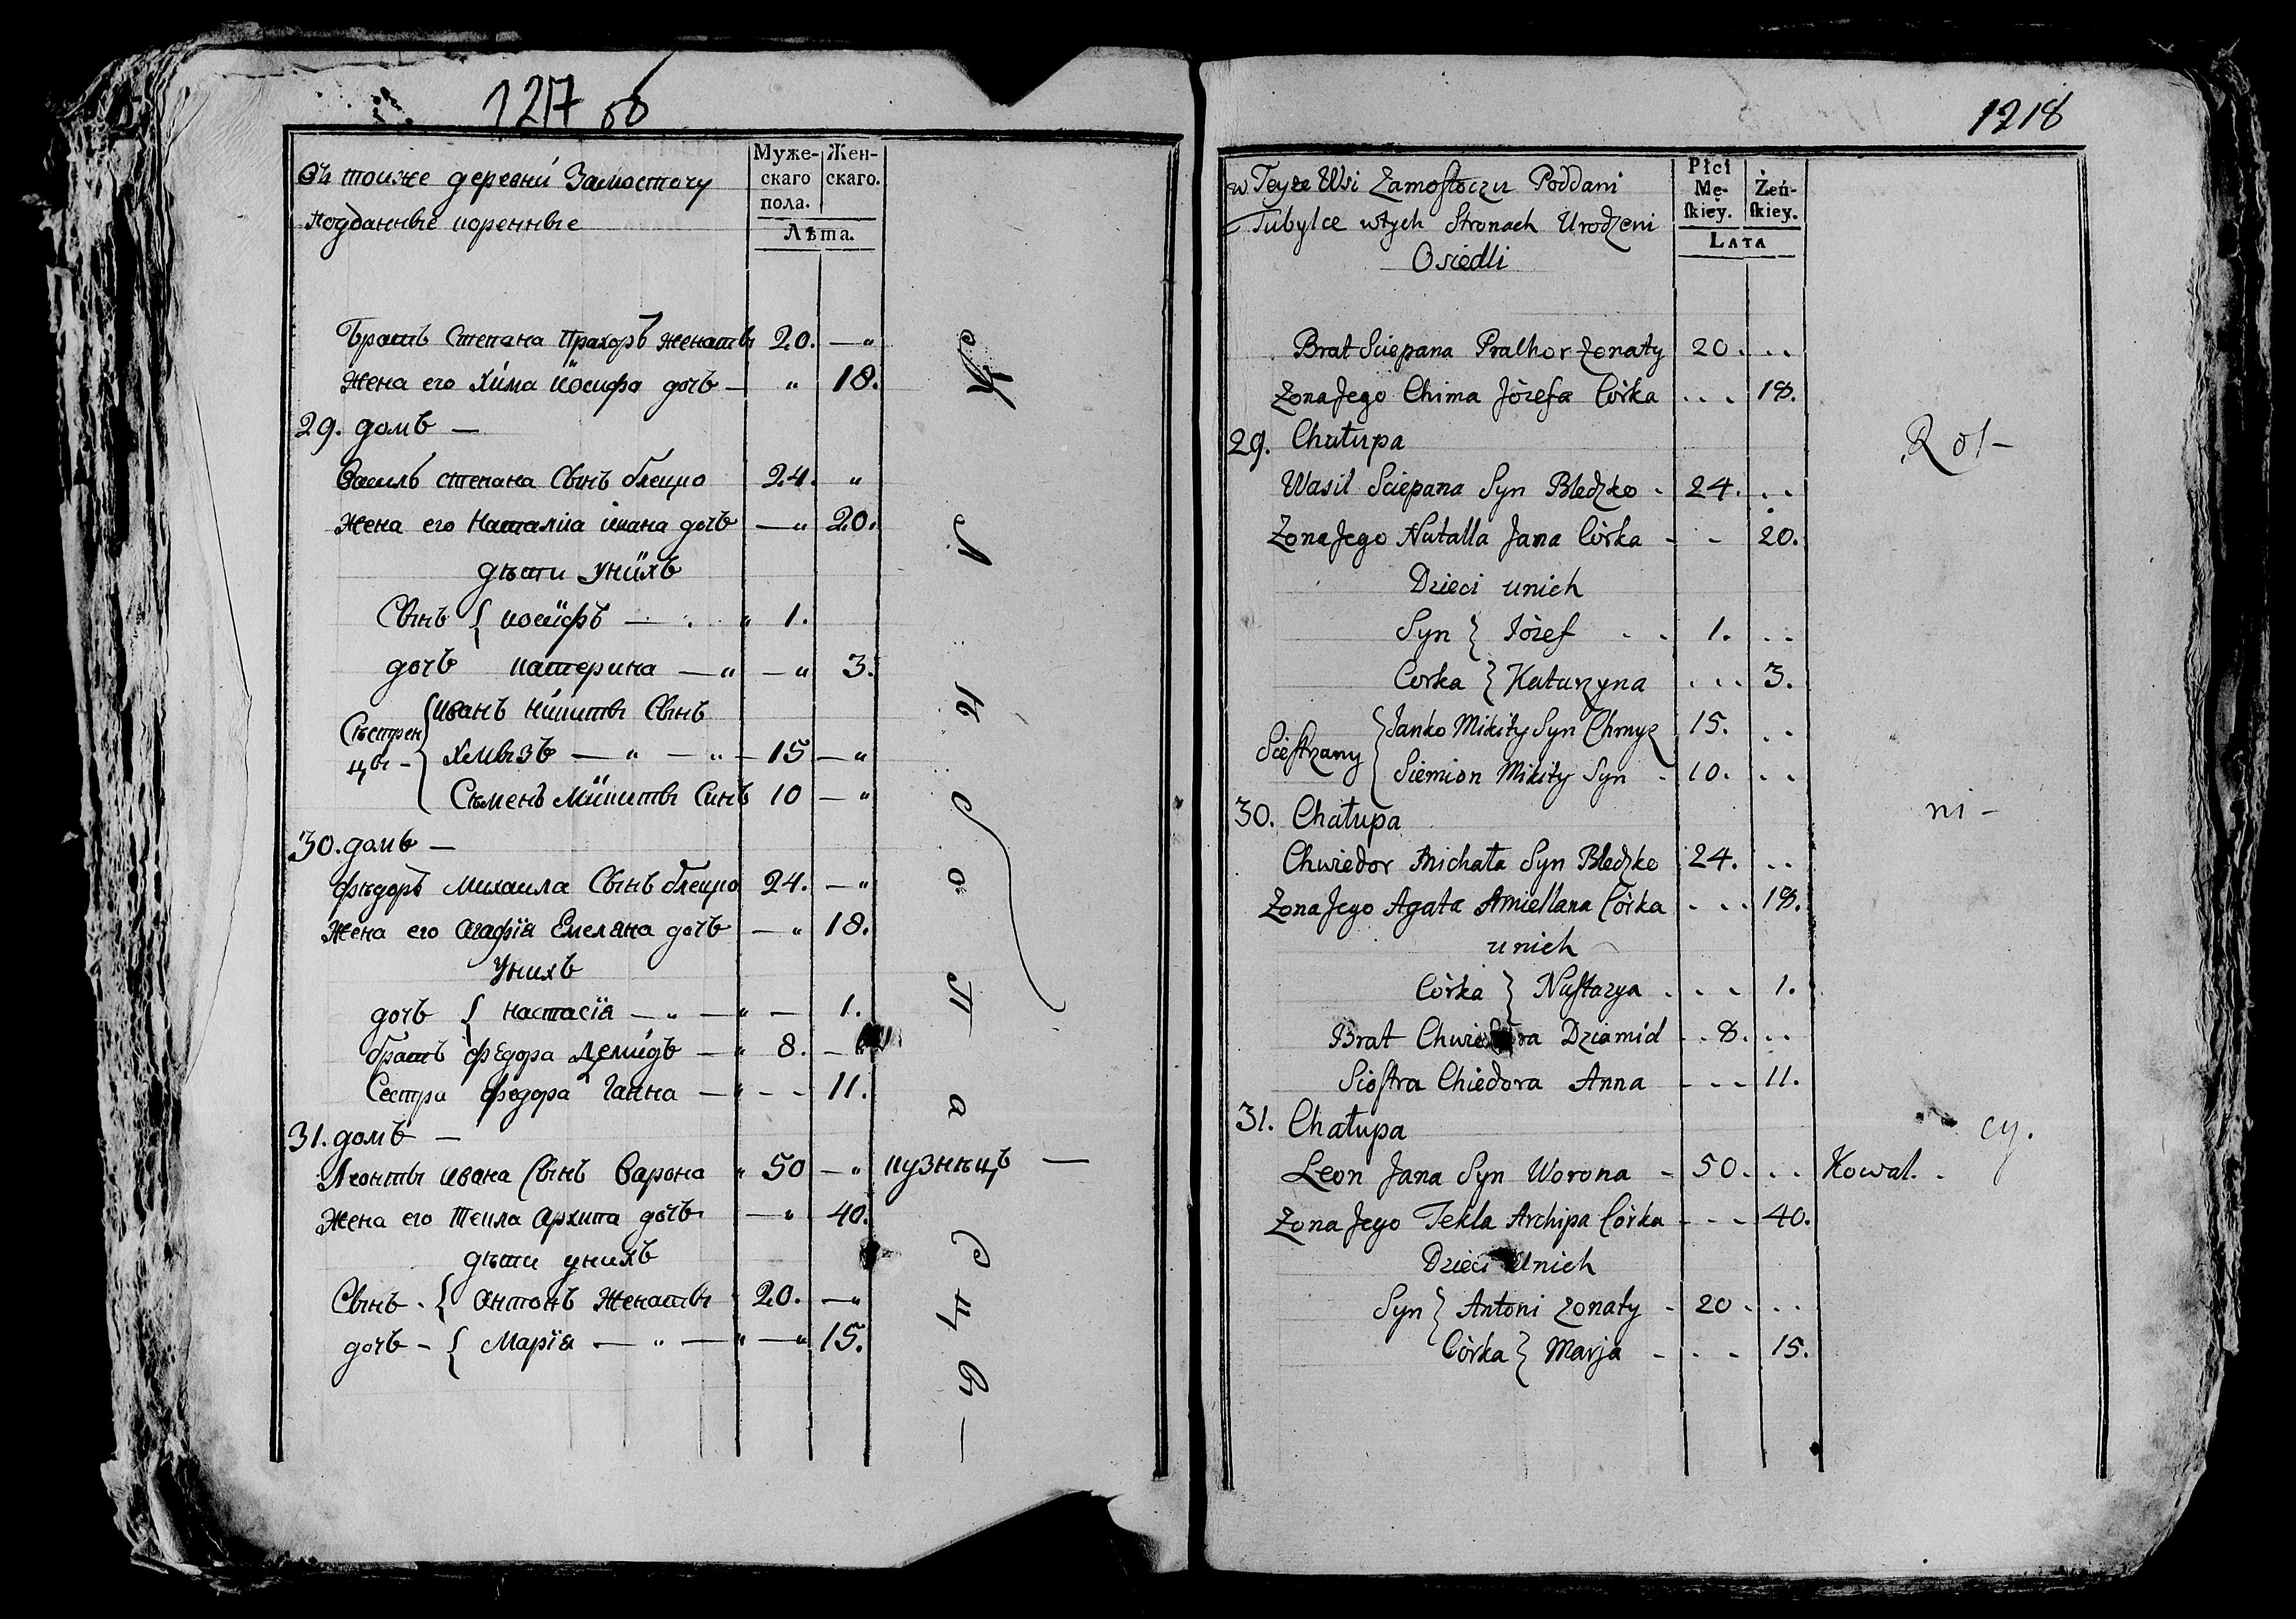 1217 об
Муже-
скаго
пола.
Жен-
скаго.
Лѣта.
Въ тоиже деревни Замосточу
Подданные коренные
Братъ Степана Прахоръ женаты 20. — "
Жена его Хима Иосифа дочь — " 18.
29. домъ —
Василь Степана Сынъ блецко 24. "
Жена его Наталиа ивана дочь — " 20.
дѣти Унихъ
Сынъ { иосифъ — . " 1.
дочь катерина — " — " 3.
Сѣстрен
цы — { иванъ никиты Сынъ
хмызъ — " — " — 15 — "
Сѣменъ Микиты Синъ 10 — "
30. домъ —
Фѣдоръ Михаила Сынъ блецко 24. — "
Жена его агафія Емеляна дочь — " 18.
Унихъ
дочь { настасія — " — " — 1.
братъ федора Демидъ — " 8. —
Сестра федора Ганна — " — - 11.
31. домъ —
Леонты ивана Сынъ Варона " 50 — " кузнѣцъ —
Жена его Текла архипа дочь — " 40.
дѣти унихъ
Сынъ . { антонъ Женаты 20. — "
дочь - { Марія — " — " — " 15.
1218
Płci
Mę-
ſkiey.
Żeń-
ſkiey.
LATA
w Teyże Wsi Zamostoczu Poddani
Tubylce w tych Stronach Urodzeni
Osiedli
Brat Sciepana Prachor żonaty 20. . .
Zona Jego Chima Józefa Córka . . . 18.
29. Chałupa
Rol-
Wasil Sciepana Syn Bledzko . 24. . .
Zona Jego Natalla Jana Córka - - 20.
Dzieci unich
Syn } Józef . . 1. . .
Corka } Katarzyna . . . 3.
Siestrzany { Janko Mikity Syn Chmyz 15. . .
Siemion Mikity Syn . 10. . .
30. Chałupa
ni -
Chwiedor Michała Syn Bledzko 24. . .
Zona Jego Agata Amiellana Córka . . . 18.
unich
Córka } Nastazya . . . 1.
Brat Chwiedora Dziamid . . 8. . .
Siostra Chiedora Anna - - - 11.
31. Chałupa
cy.
Leon Jana Syn Worona - 50. . . Kowal. .
Zona Jego Tekla Archipa Córka - - - 40.
Dzieci Unich
Syn } Antoni żonaty - 20 . . .
Córka } Marja - - - 15.